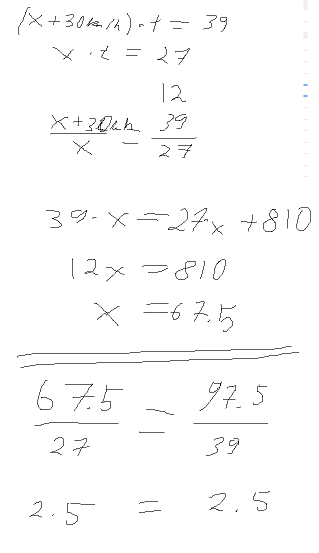 (x+30km/h)·t = 39
x · t = 27
12
x+30kmh 39
x = 27
39·x = 27x +810
12x = 810
x = 67.5
67.5 = 97.5
27 39
2.5 = 2.5